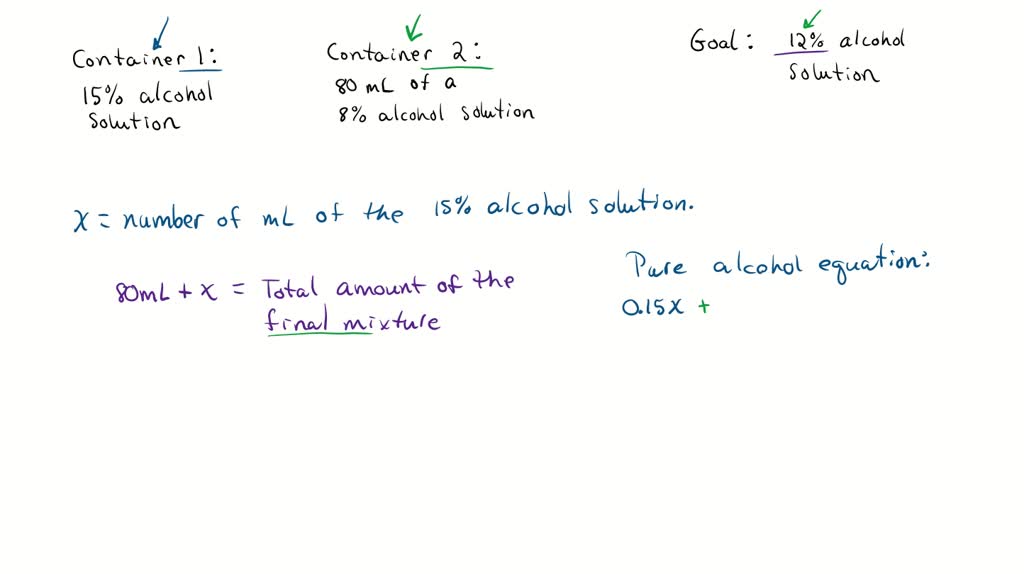 Container 1:
15% alcohol
Solution
Container 2:
80 mL of a
8% alcohol solution
Goal: 12% alcohol
Solution
x = number of mL of the 15% alcohol solution.
80mL + x = Total amount of the
final mixture
Pure alcohol equation:
0.15x +